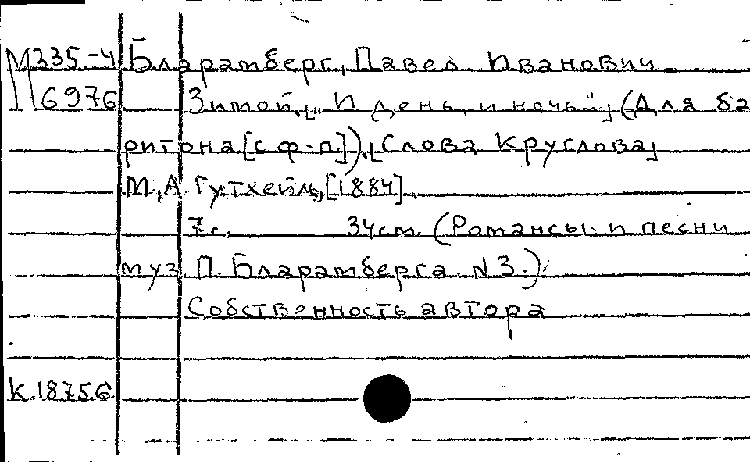 М235-4 Бларамберг, Павел Иванович
6976 Зимой. [„И день и ночь“] (Для ба
ритона [с ф-п]). [Слова Круглова]
М., А. Гутхейль, [1884].
7 с. 34 см. (Романсы и песни
муз. П. Бларамберга. N3.)
Собственность автора
К.18756